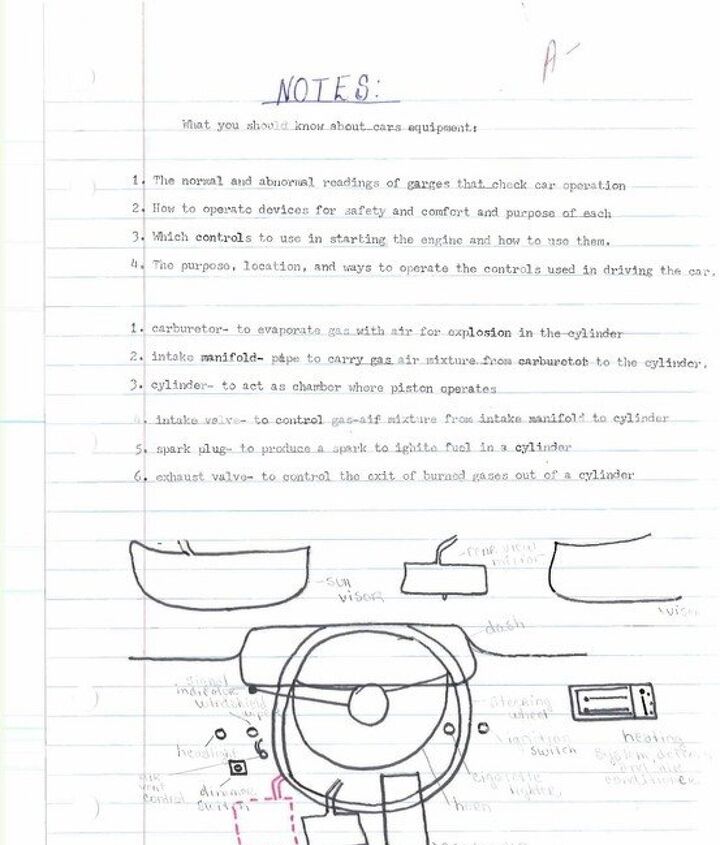 A-
NOTES:
What you should know about cars equipment:
1. The normal and abnormal readings of garges that check car operation
2. How to operate devices for safety and comfort and purpose of each
3. Which controls to use in starting the engine and how to use them.
4. The purpose, location, and ways to operate the controls used in driving the car.
1. carburetor- to evaporate gas with air for explosion in the cylinder
2. intake manifold- pipe to carry gas air mixture from carburetot to the cylinder.
3. cylinder- to act as chamber where piston operates
4. intake valve- to control gas-aif mixture from intake manifold to cylinder
5. spark plug- to produce a spark to ignite fuel in a cylinder
6. exhaust valve- to control the exit of burned gases out of a cylinder
rear view
mirror
sun
visor
visor
dash
signal
indicator
windshield
steering
wheel
headlight
ignition
switch
heating
system
and air
conditioner
air
vent
control
dimmer
switch
cigarette
lighter
horn